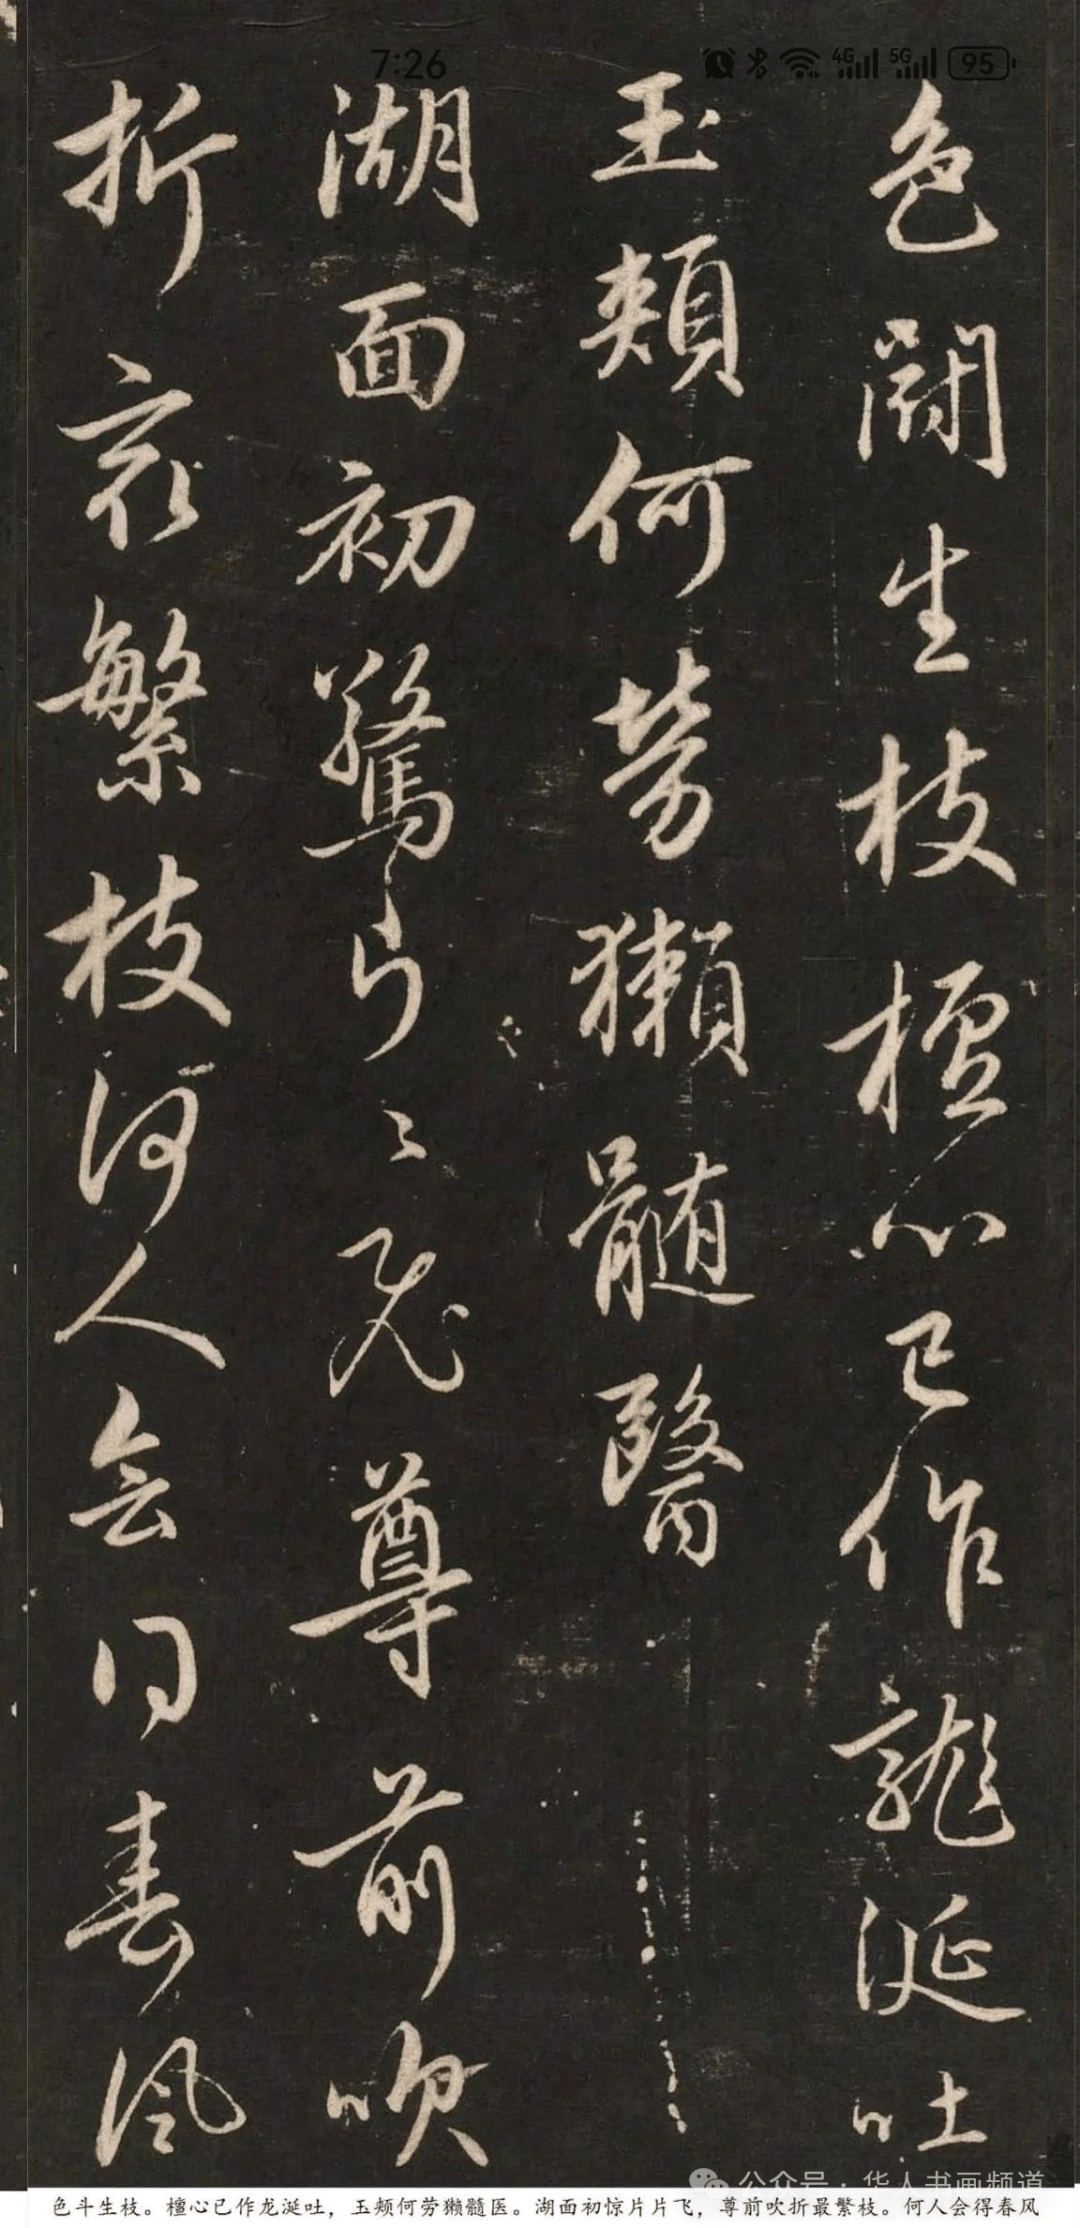 7:26
4G 5G 95
色鬭生枝檀心已作龍涎吐
玉頰何勞獺髓醫
湖面初驚片〻飛尊前吹
折最繁枝何人会得春風
公众号·华人书画频道
色斗生枝。檀心已作龙涎吐，玉颊何劳獭髓医。湖面初惊片片飞，尊前吹折最繁枝。何人会得春风